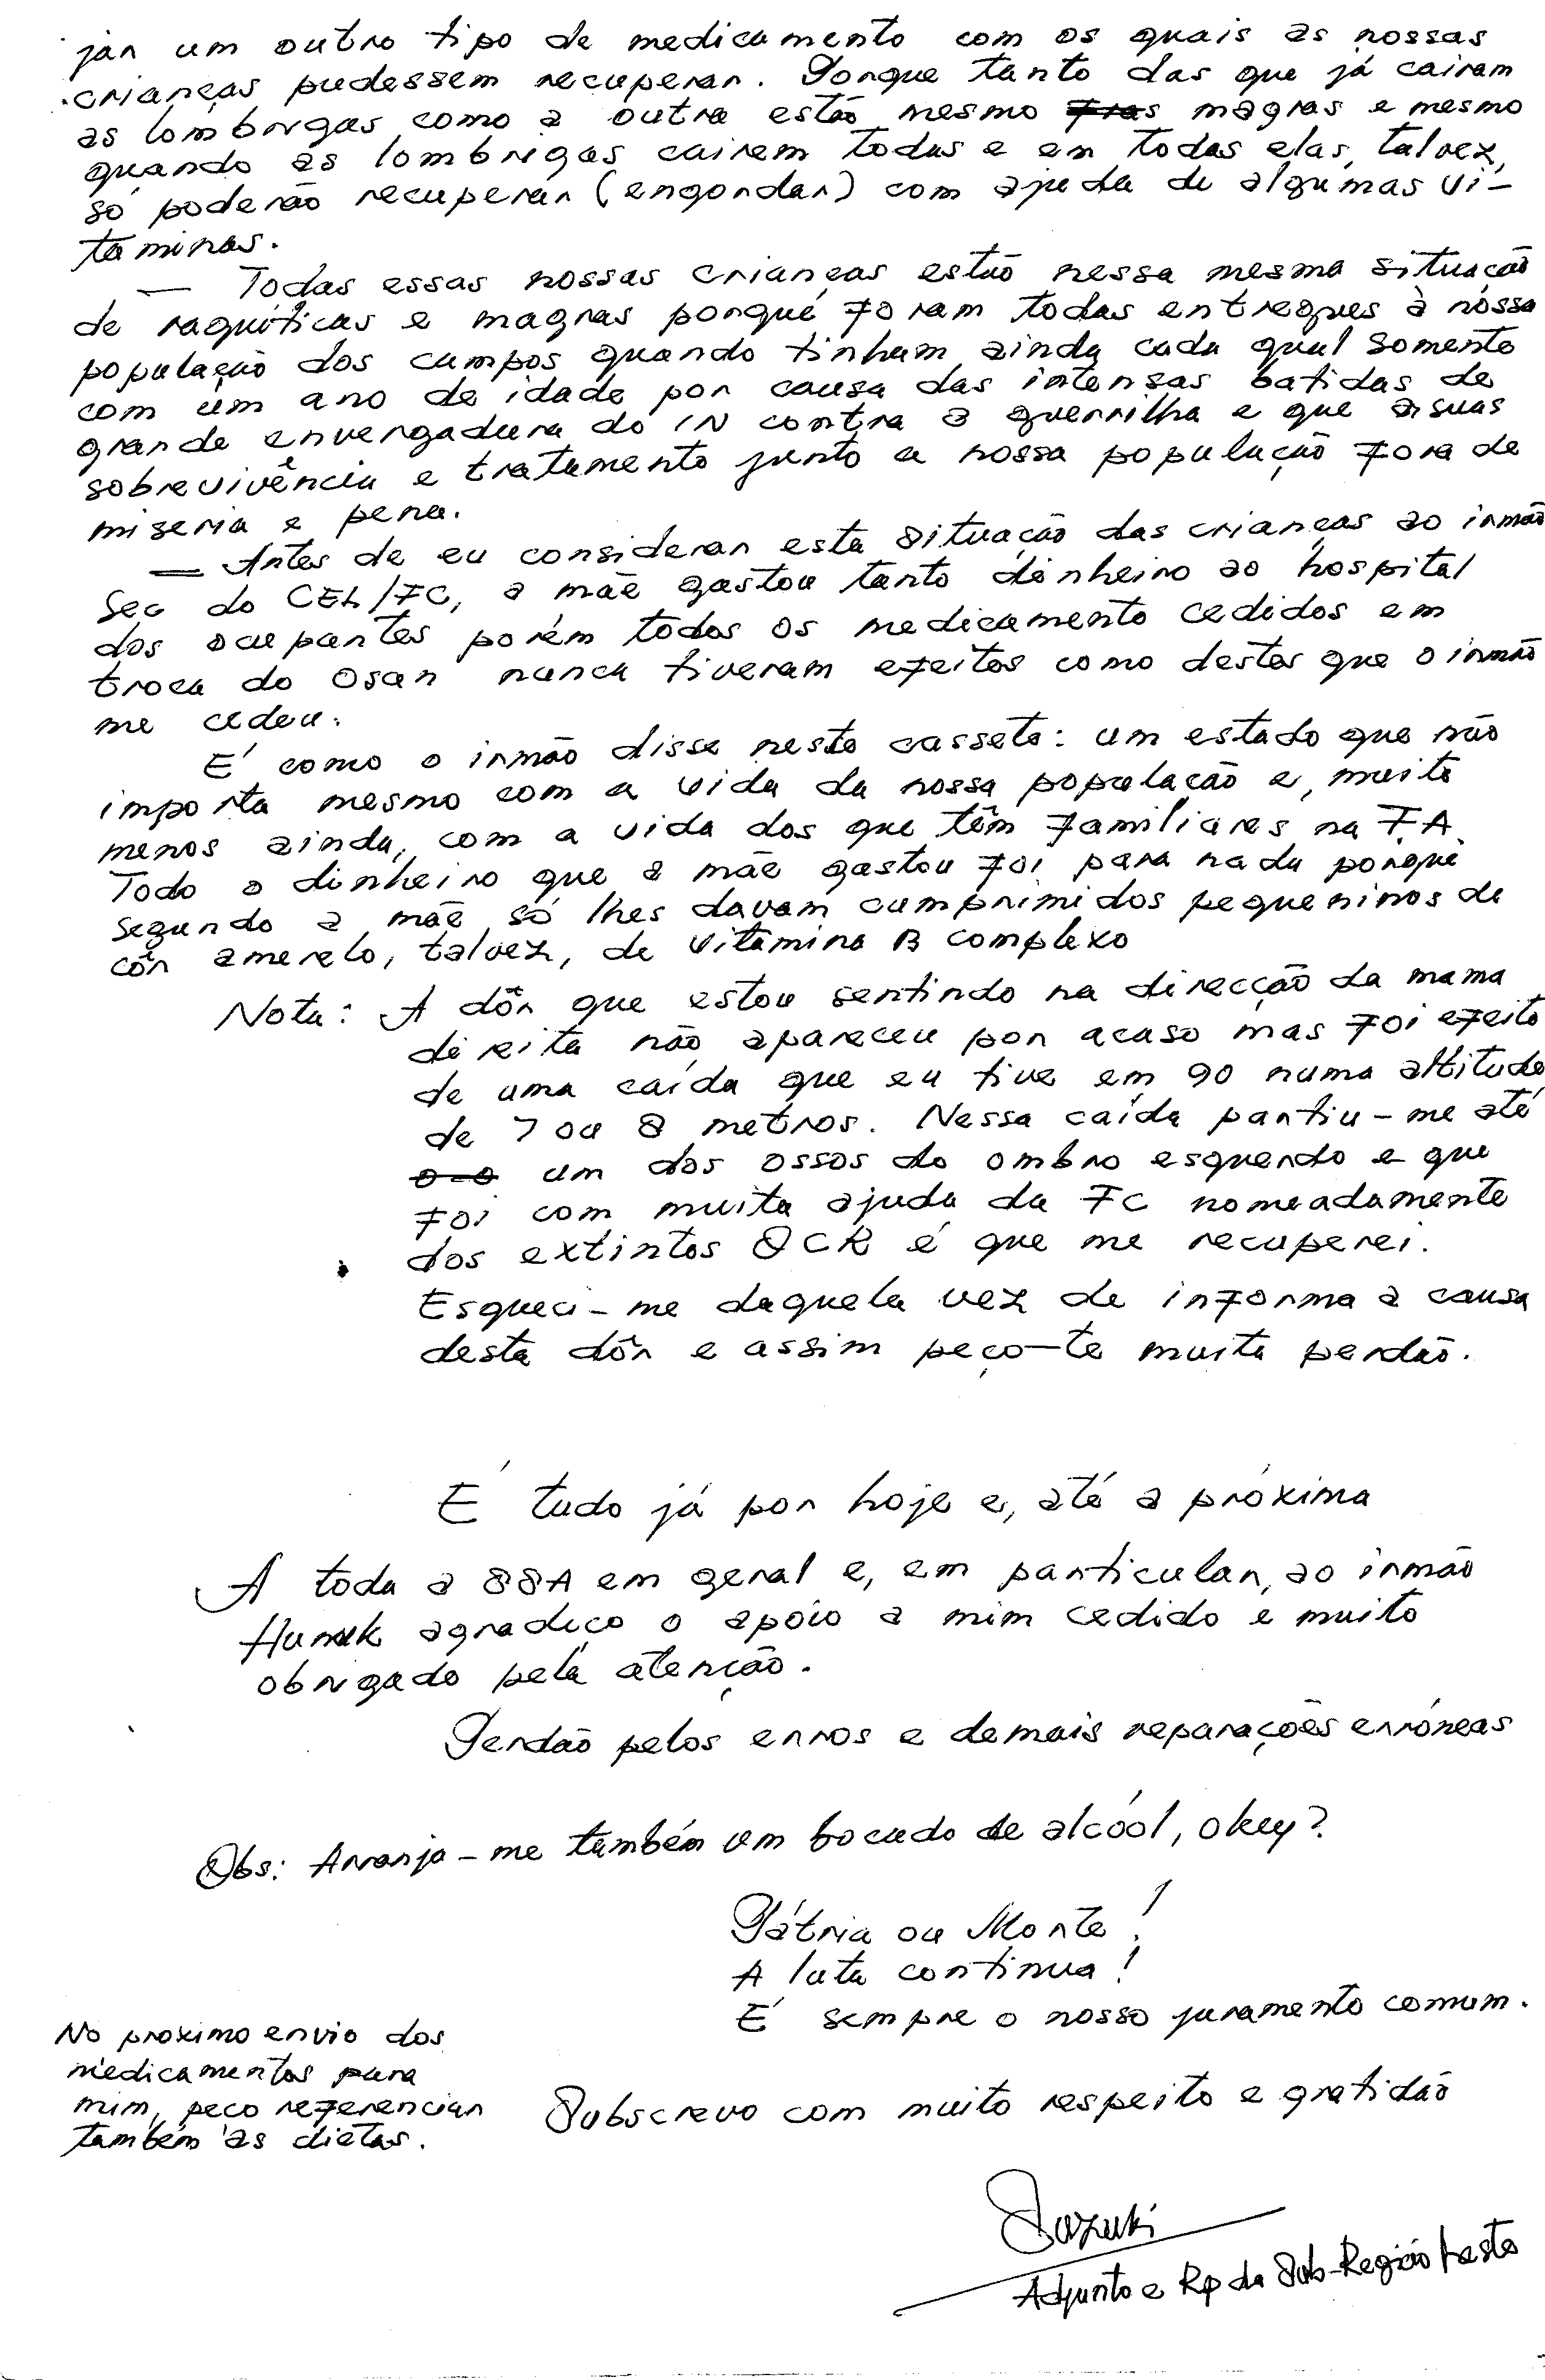 jar um outro tipo de medicamento com os quais as nossas
crianças pudessem recuperar. Porque tanto das que já cairam
as lombrigas como a outra estão mesmo magras e mesmo
quando as lombrigas cairem todas e em todas elas, talvez,
só poderão recuperar (engordar) com ajuda de algumas vi-
taminas.
— Todas essas nossas crianças estão nessa mesma situação
de raquíticas e magras porquê foram todas entregues à nossa
população dos campos quando tinham ainda cada qual somente
com um ano de idade por causa das intensas batidas de
grande envergadura do IN contra a guerrilha e que as suas
sobrevivência e tratamento junto a nossa população fora de
miseria e pena.
— Antes de eu considerar esta situação das crianças ao irmão
Sec do CEL/FC, a mãe gastou tanto dinheiro ao hospital
dos ocupantes porém todos os medicamento cedidos em
troca do Osan nunca tiveram efeitos como destes que o irmão
me cedeu.
É como o irmão disse neste casseto: um estado que não
importa mesmo com a vida da nossa população e, muito
menos ainda, com a vida dos que têm familiares na FA.
Todo o dinheiro que a mãe gastou foi para nada porquê
segundo a mãe só lhes davam cumprimidos pequeninos de
côr amerelo, talvez, de vitamina B complexo
Nota: A dôr que estou sentindo na direcção da mama
direita não apareceu por acaso mas foi efeito
de uma caída que eu tive em 90 numa altitude
de 7 ou 8 metros. Nessa caída partiu-me até
um dos ossos do ombro esquerdo e que
foi com muita ajuda da FC nomeadamente
dos extintos OCR é que me recuperei.
Esqueci-me daquela vez de informa a causa
desta dôr e assim peço-te muita perdão.
É tudo já por hoje e, até a próxima
A toda a SSA em geral e, em particular, ao irmão
agradeço o apoio a mim cedido e muito
obrigado pela atenção.
Perdão pelos erros e demais reparações erróneas
Obs: Arranja-me também um bocado de alcóol, okey?
Pátria ou Morte!
A luta continua!
É sempre o nosso juramento comum.
No proximo envio dos
medicamentos para
mim, peço referenciar
também as dietas.
Subscrevo com muito respeito e gratidão
Suzuki
Adjunto e Rp da Sub-Região Leste